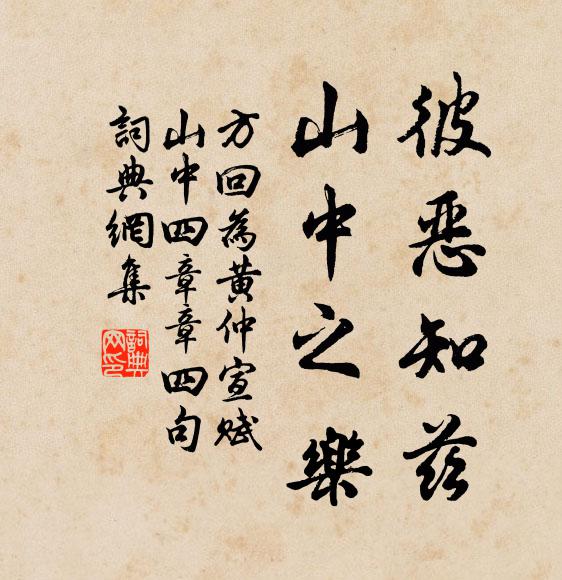 彼惡知茲
山中之樂
方回為黃仲宣賦
山中四章章四句
詞典網集
詞典
网印